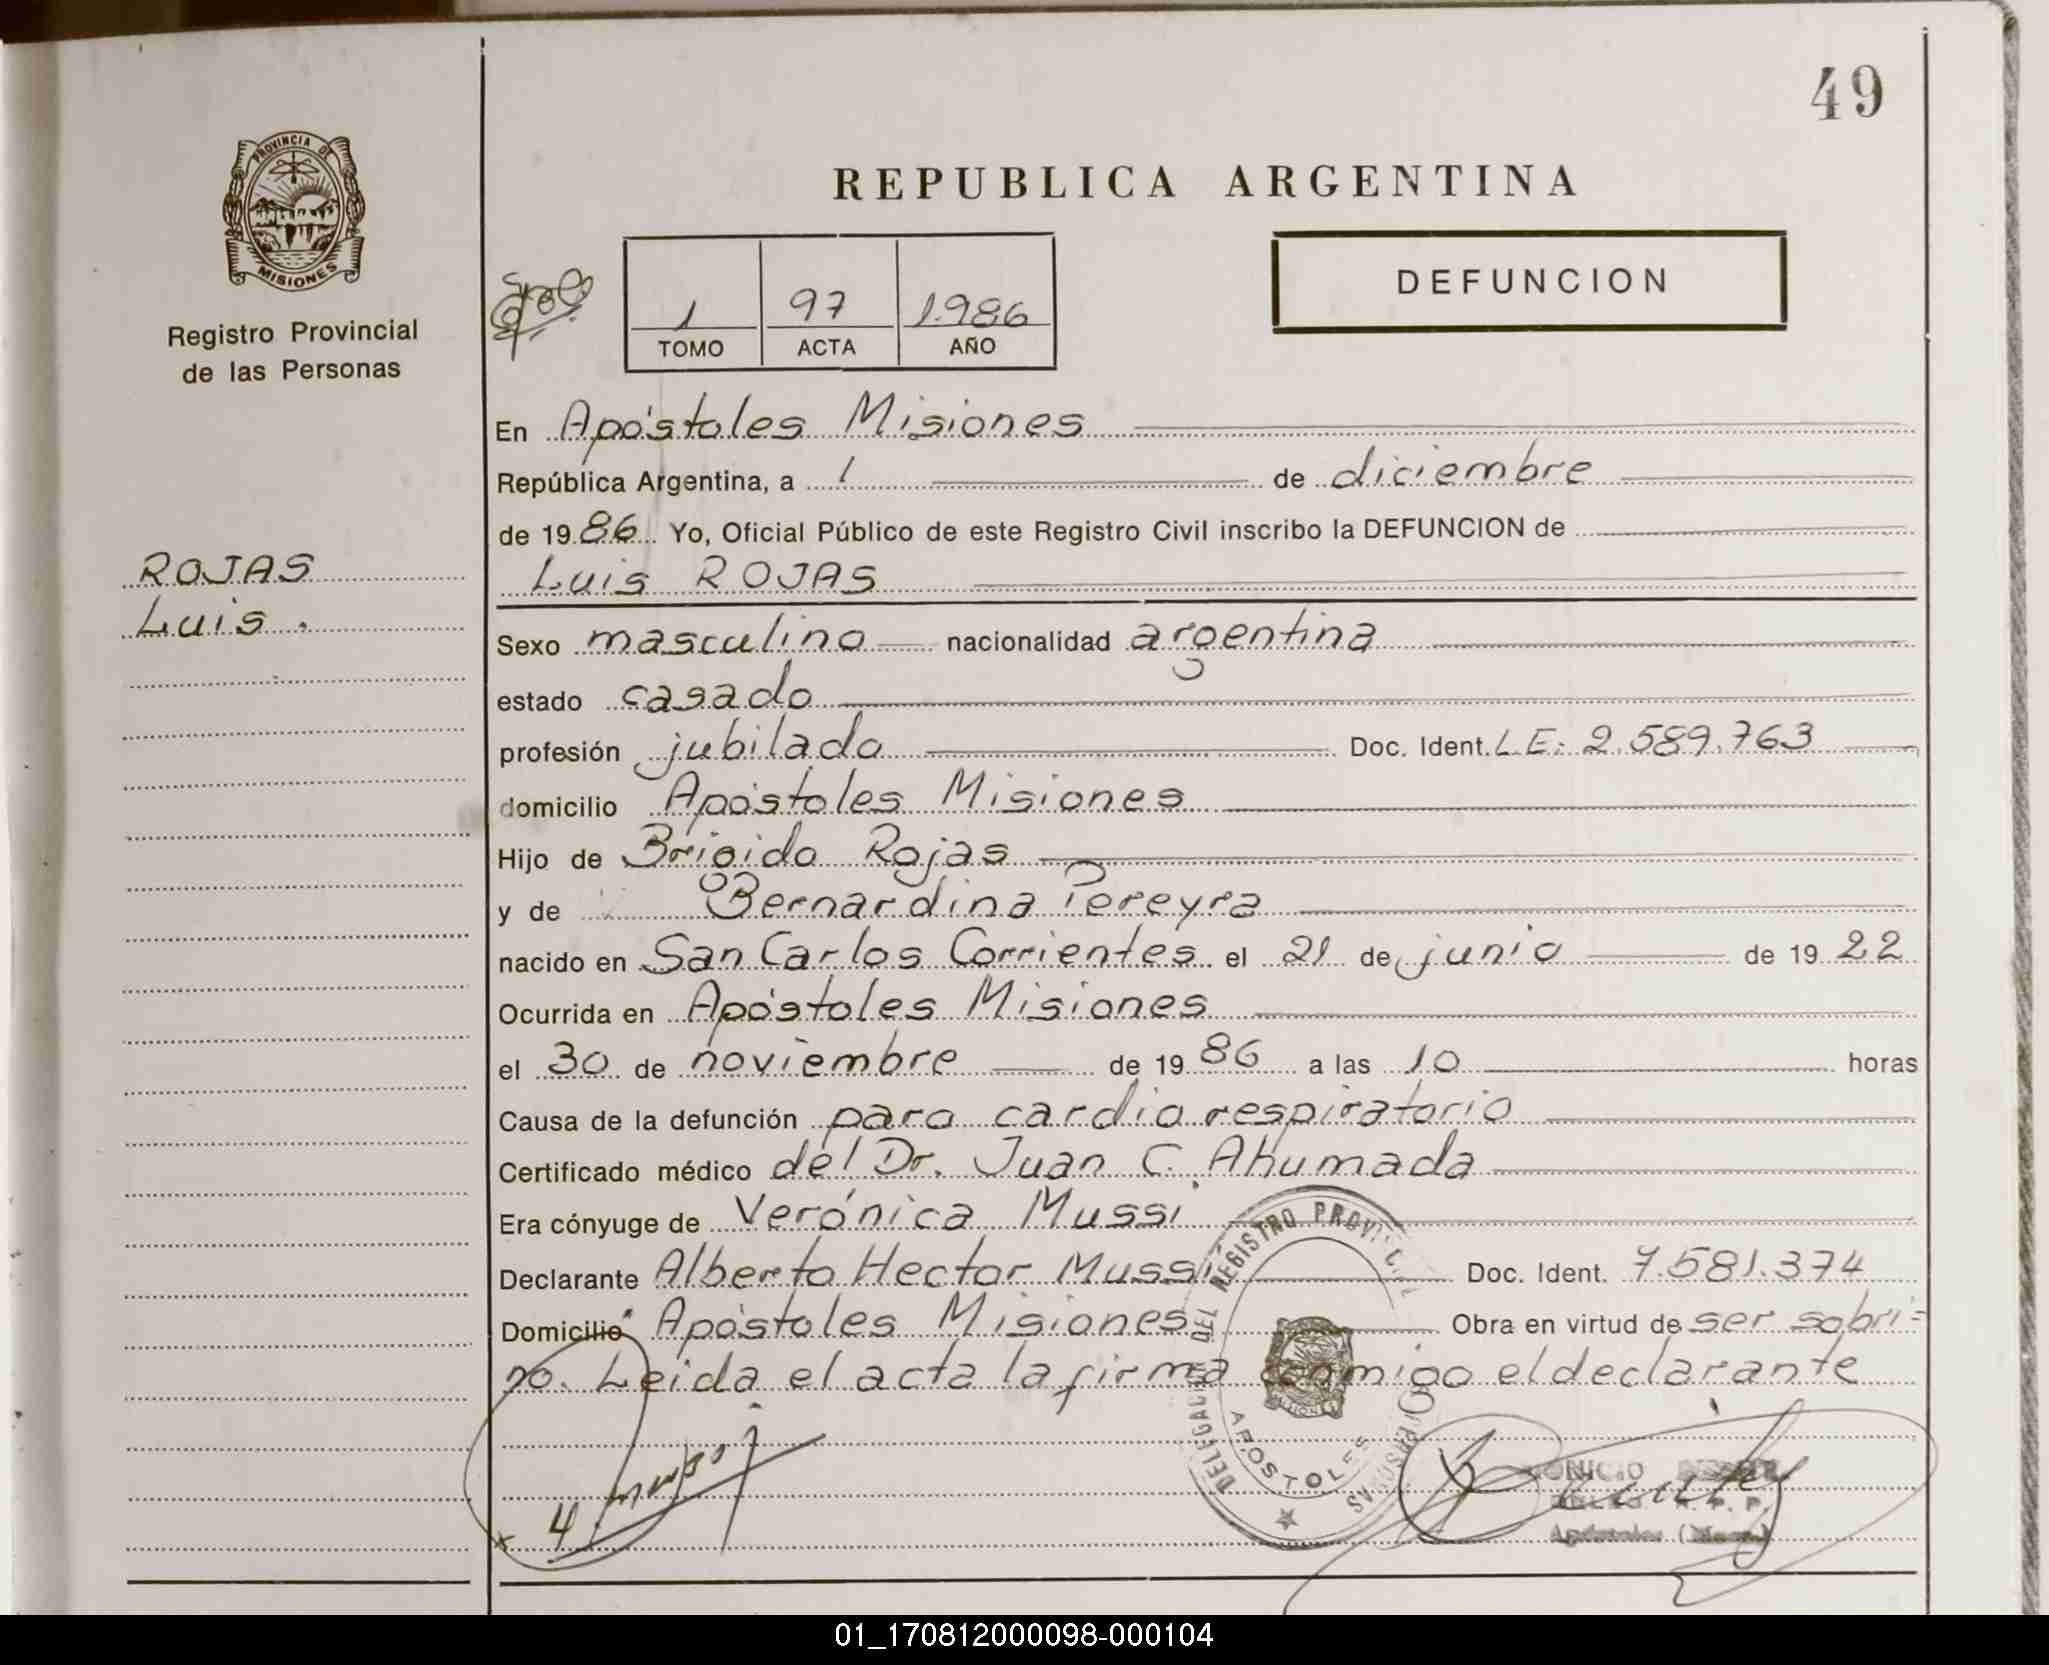 49
PROVINCIA DE
MISIONES
Registro Provincial
de las Personas
REPUBLICA ARGENTINA
DEFUNCION
1 97 1.986
TOMO ACTA AÑO
ROJAS
Luis.
En Apóstoles Misiones
República Argentina, a 1 de diciembre
de 19 86 Yo, Oficial Público de este Registro Civil inscribo la DEFUNCION de
Luis ROJAS
Sexo masculino nacionalidad argentina
estado casado
profesión jubilado Doc. Ident. L.E: 2.589.763
domicilio Apóstoles Misiones
Hijo de Brigido Rojas
y de Bernardina Pereyra
nacido en San Carlos Corrientes el 21 de junio de 19 22
Ocurrida en Apóstoles Misiones
el 30 de noviembre de 19 86 a las 10 horas
Causa de la defunción paro cardio respiratorio
Certificado médico del Dr. Juan C. Ahumada
Era cónyuge de Verónica Mussi
Declarante Alberto Hector Mussi Doc. Ident. 7.581.374
Domicilio Apóstoles Misiones Obra en virtud de ser sobri=
no. Leida el acta la firma conmigo el declarante
DELEGACION DEL REGISTRO PROVINCIAL
APOSTOLES
01_170812000098-000104